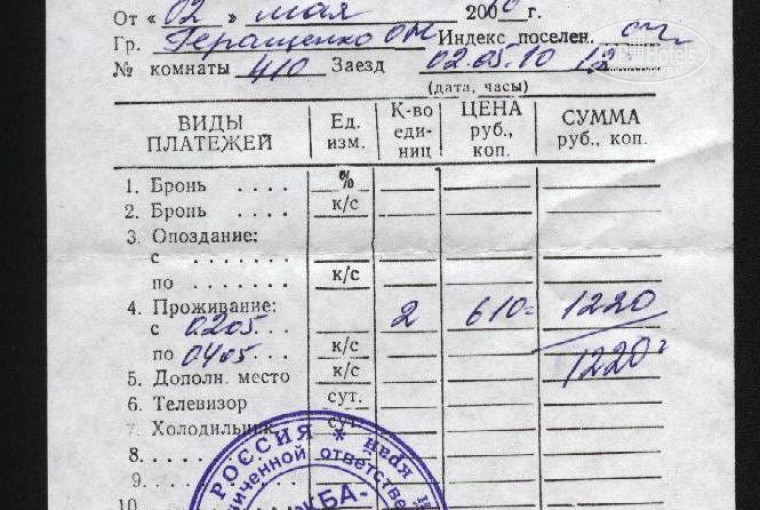 От « 02 » мая 200 г.
Гр. Геращенко ОН Индекс поселен.
№ комнаты 410 Заезд 02.05.10 12
(дата, часы)
ВИДЫ ПЛАТЕЖЕЙ Ед. изм. К-во единиц ЦЕНА руб., коп. СУММА руб., коп.
1. Бронь . . . . %
2. Бронь . . . . к/с
3. Опоздание:
с . . . . . . .
по . . . . . . . к/с
4. Проживание: 2 610= 1220
с 0205 . . .
по 0405 . . . к/с 1220
5. Дополн. место к/с
6. Телевизор сут.
7. Холодильник сут.
8. . . .
9. . . .
10.
РОССИЯ * край
ниченной ответстве
ЖБА-